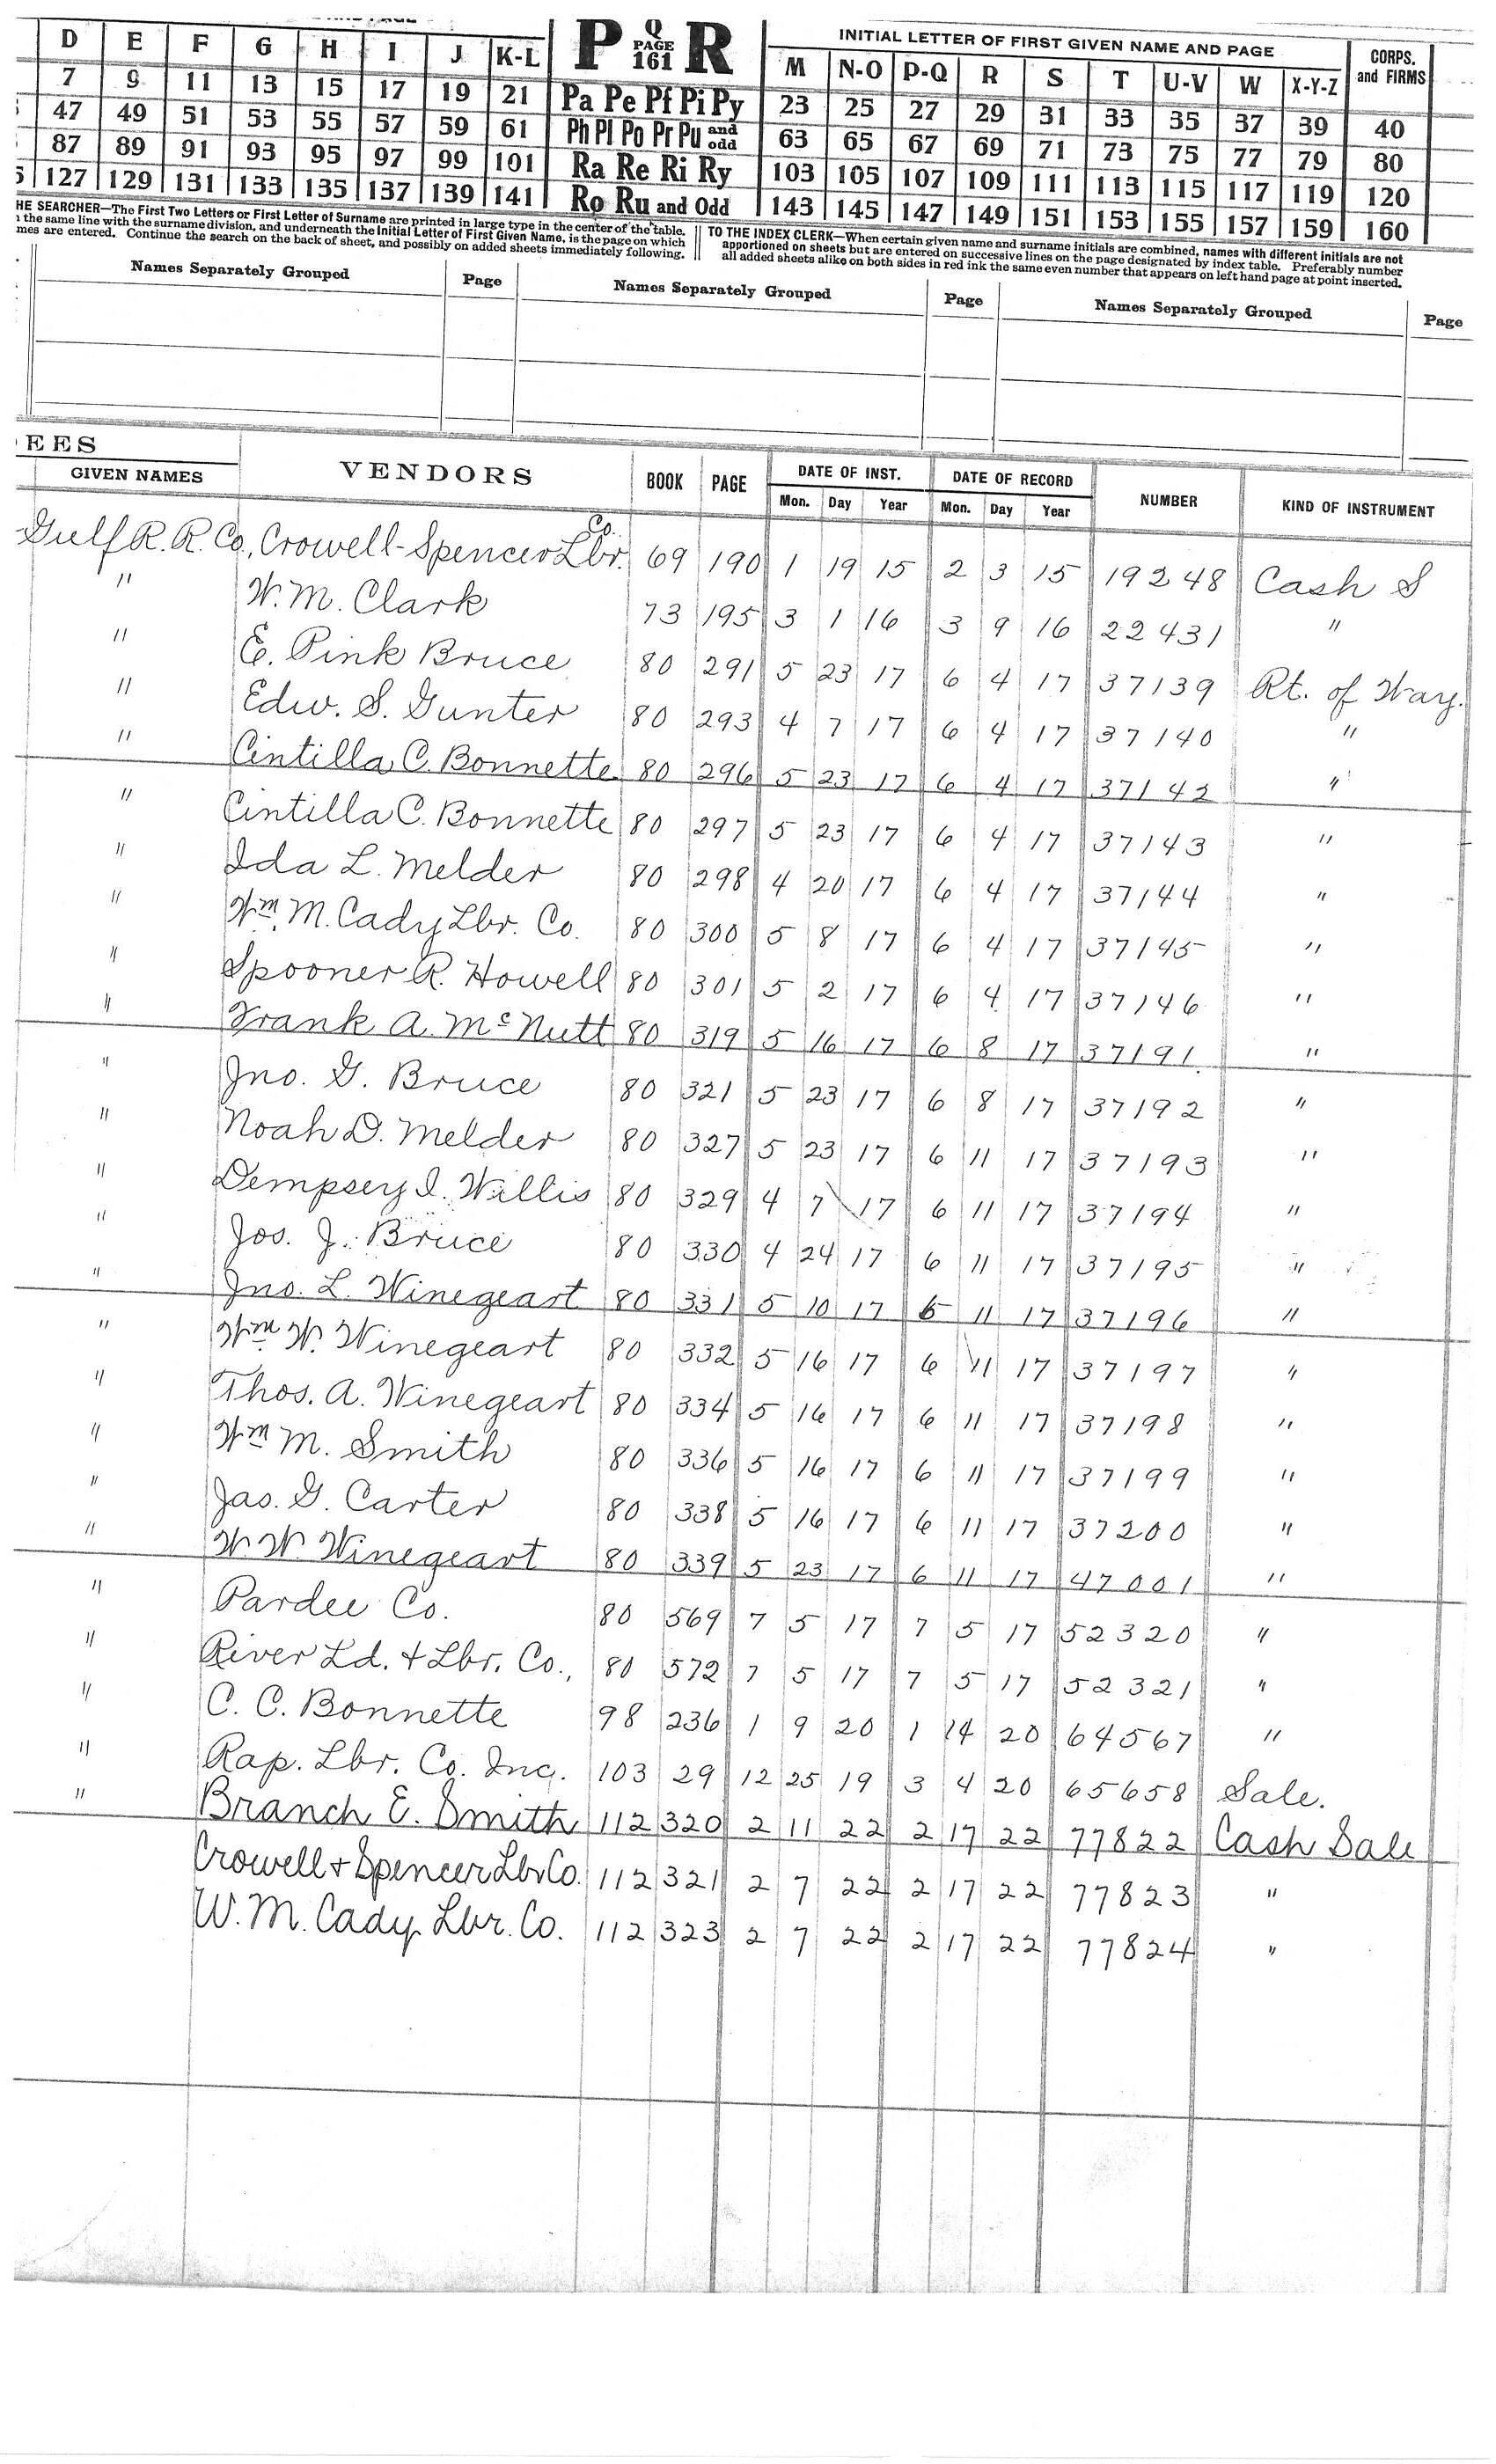 D E F G H I J K-L P Q PAGE 161 R INITIAL LETTER OF FIRST GIVEN NAME AND PAGE CORPS. and FIRMS
M N-O P-Q R S T U-V W X-Y-Z
7 9 11 13 15 17 19 21 Pa Pe Pf Pi Py 23 25 27 29 31 33 35 37 39 40
47 49 51 53 55 57 59 61 Ph Pl Po Pr Pu and odd 63 65 67 69 71 73 75 77 79 80
87 89 91 93 95 97 99 101 Ra Re Ri Ry 103 105 107 109 111 113 115 117 119 120
127 129 131 133 135 137 139 141 Ro Ru and Odd 143 145 147 149 151 153 155 157 159 160
HE SEARCHER—The First Two Letters or First Letter of Surname are printed in large type in the center of the table.
the same line with the surname division, and underneath the Initial Letter of First Given Name, is the page on which
mes are entered. Continue the search on the back of sheet, and possibly on added sheets immediately following.
TO THE INDEX CLERK—When certain given name and surname initials are combined, names with different initials are not
apportioned on sheets but are entered on successive lines on the page designated by index table. Preferably number
all added sheets alike on both sides in red ink the same even number that appears on left hand page at point inserted.
Names Separately Grouped Page Names Separately Grouped Page Names Separately Grouped Page
EES
GIVEN NAMES VENDORS BOOK PAGE DATE OF INST. DATE OF RECORD NUMBER KIND OF INSTRUMENT
Mon. Day Year Mon. Day Year
Gulf R. R. Co., Crowell-Spencer Lbr. Co. 69 190 1 19 15 2 3 15 19248 Cash S
" W. M. Clark 73 195 3 1 16 3 9 16 22431 "
" E. Pink Bruce 80 291 5 23 17 6 4 17 37139 Rt. of Way.
" Edw. S. Gunter 80 293 4 7 17 6 4 17 37140 "
" Cintilla C. Bonnette 80 296 5 23 17 6 4 17 37142 "
" Cintilla C. Bonnette 80 297 5 23 17 6 4 17 37143 "
" Ida L. Melder 80 298 4 20 17 6 4 17 37144 "
" Wm. M. Cady Lbr. Co. 80 300 5 8 17 6 4 17 37145 "
" Spooner R. Howell 80 301 5 2 17 6 4 17 37146 "
" Frank A. McNutt 80 319 5 16 17 6 8 17 37191 "
" Jno. G. Bruce 80 321 5 23 17 6 8 17 37192 "
" Noah D. Melder 80 327 5 23 17 6 11 17 37193 "
" Dempsey I. Willis 80 329 4 7 17 6 11 17 37194 "
" Jos. J. Bruce 80 330 4 24 17 6 11 17 37195 "
" Jno. L. Winegeart 80 331 5 10 17 6 11 17 37196 "
" Wm. W. Winegeart 80 332 5 16 17 6 11 17 37197 "
" Thos. A. Winegeart 80 334 5 16 17 6 11 17 37198 "
" Wm M. Smith 80 336 5 16 17 6 11 17 37199 "
" Jas. G. Carter 80 338 5 16 17 6 11 17 37200 "
" W. W. Winegeart 80 339 5 23 17 6 11 17 47001 "
" Pardee Co. 80 569 7 5 17 7 5 17 52320 "
" River Ld. + Lbr. Co., 80 572 7 5 17 7 5 17 52321 "
" C. C. Bonnette 98 236 1 9 20 1 14 20 64567 "
" Rap. Lbr. Co. Inc. 103 29 12 25 19 3 4 20 65658 Sale.
" Branch E. Smith 112 320 2 11 22 2 17 22 77822 Cash Sale
Crowell + Spencer Lbr Co. 112 321 2 7 22 2 17 22 77823 "
W. M. Cady Lbr. Co. 112 323 2 7 22 2 17 22 77824 "